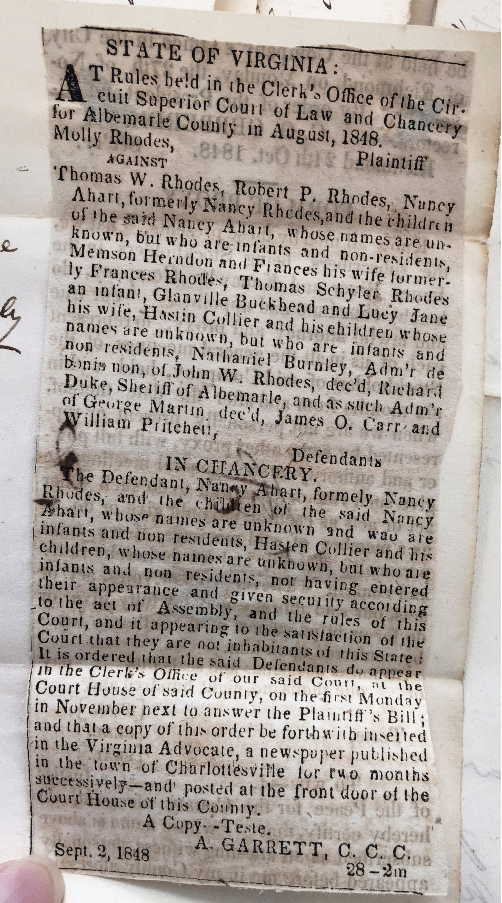 STATE OF VIRGINIA:
AT Rules held in the Clerk's Office of the Cir-
cuit Superior Court of Law and Chancery
for Albemarle County in August, 1848.
Molly Rhodes, Plaintiff
AGAINST
Thomas W. Rhodes, Robert P. Rhodes, Nancy
Ahart, formerly Nancy Rhodes, and the children
of the said Nancy Ahart, whose names are un-
known, but who are infants and non-residents,
Memson Herndon and Frances his wife former-
ly Frances Rhodes, Thomas Schyler Rhodes
an infant, Glanville Buckhead and Lucy Jane
his wife, Hastin Collier and his children whose
names are unknown, but who are infants and
non residents, Nathaniel Burnley, Adm'r de
bonis non, of John W. Rhodes, dec'd, Richard
Duke, Sheriff of Albemarle, and as such Adm'r
of George Martin, dec'd, James O. Carr and
William Pritchett,
Defendants
IN CHANCERY.
The Defendant, Nancy Ahart, formely Nancy
Rhodes, and the children of the said Nancy
Ahart, whose names are unknown and who are
infants and non residents, Hasten Collier and his
children, whose names are unknown, but who are
infants and non residents, not having entered
their appearance and given security according
to the act of Assembly, and the rules of this
Court, and it appearing to the satisfaction of the
Court that they are not inhabitants of this State:
It is ordered that the said Defendants do appear
in the Clerk's Office of our said Court, at the
Court House of said County, on the first Monday
in November next to answer the Plaintiff's Bill;
and that a copy of this order be forthwith inserted
in the Virginia Advocate, a newspaper published
in the town of Charlottesville for two months
successively—and posted at the front door of the
Court House of this County.
A Copy--Teste.
A. GARRETT, C. C. C.
Sept. 2, 1848 28-2m